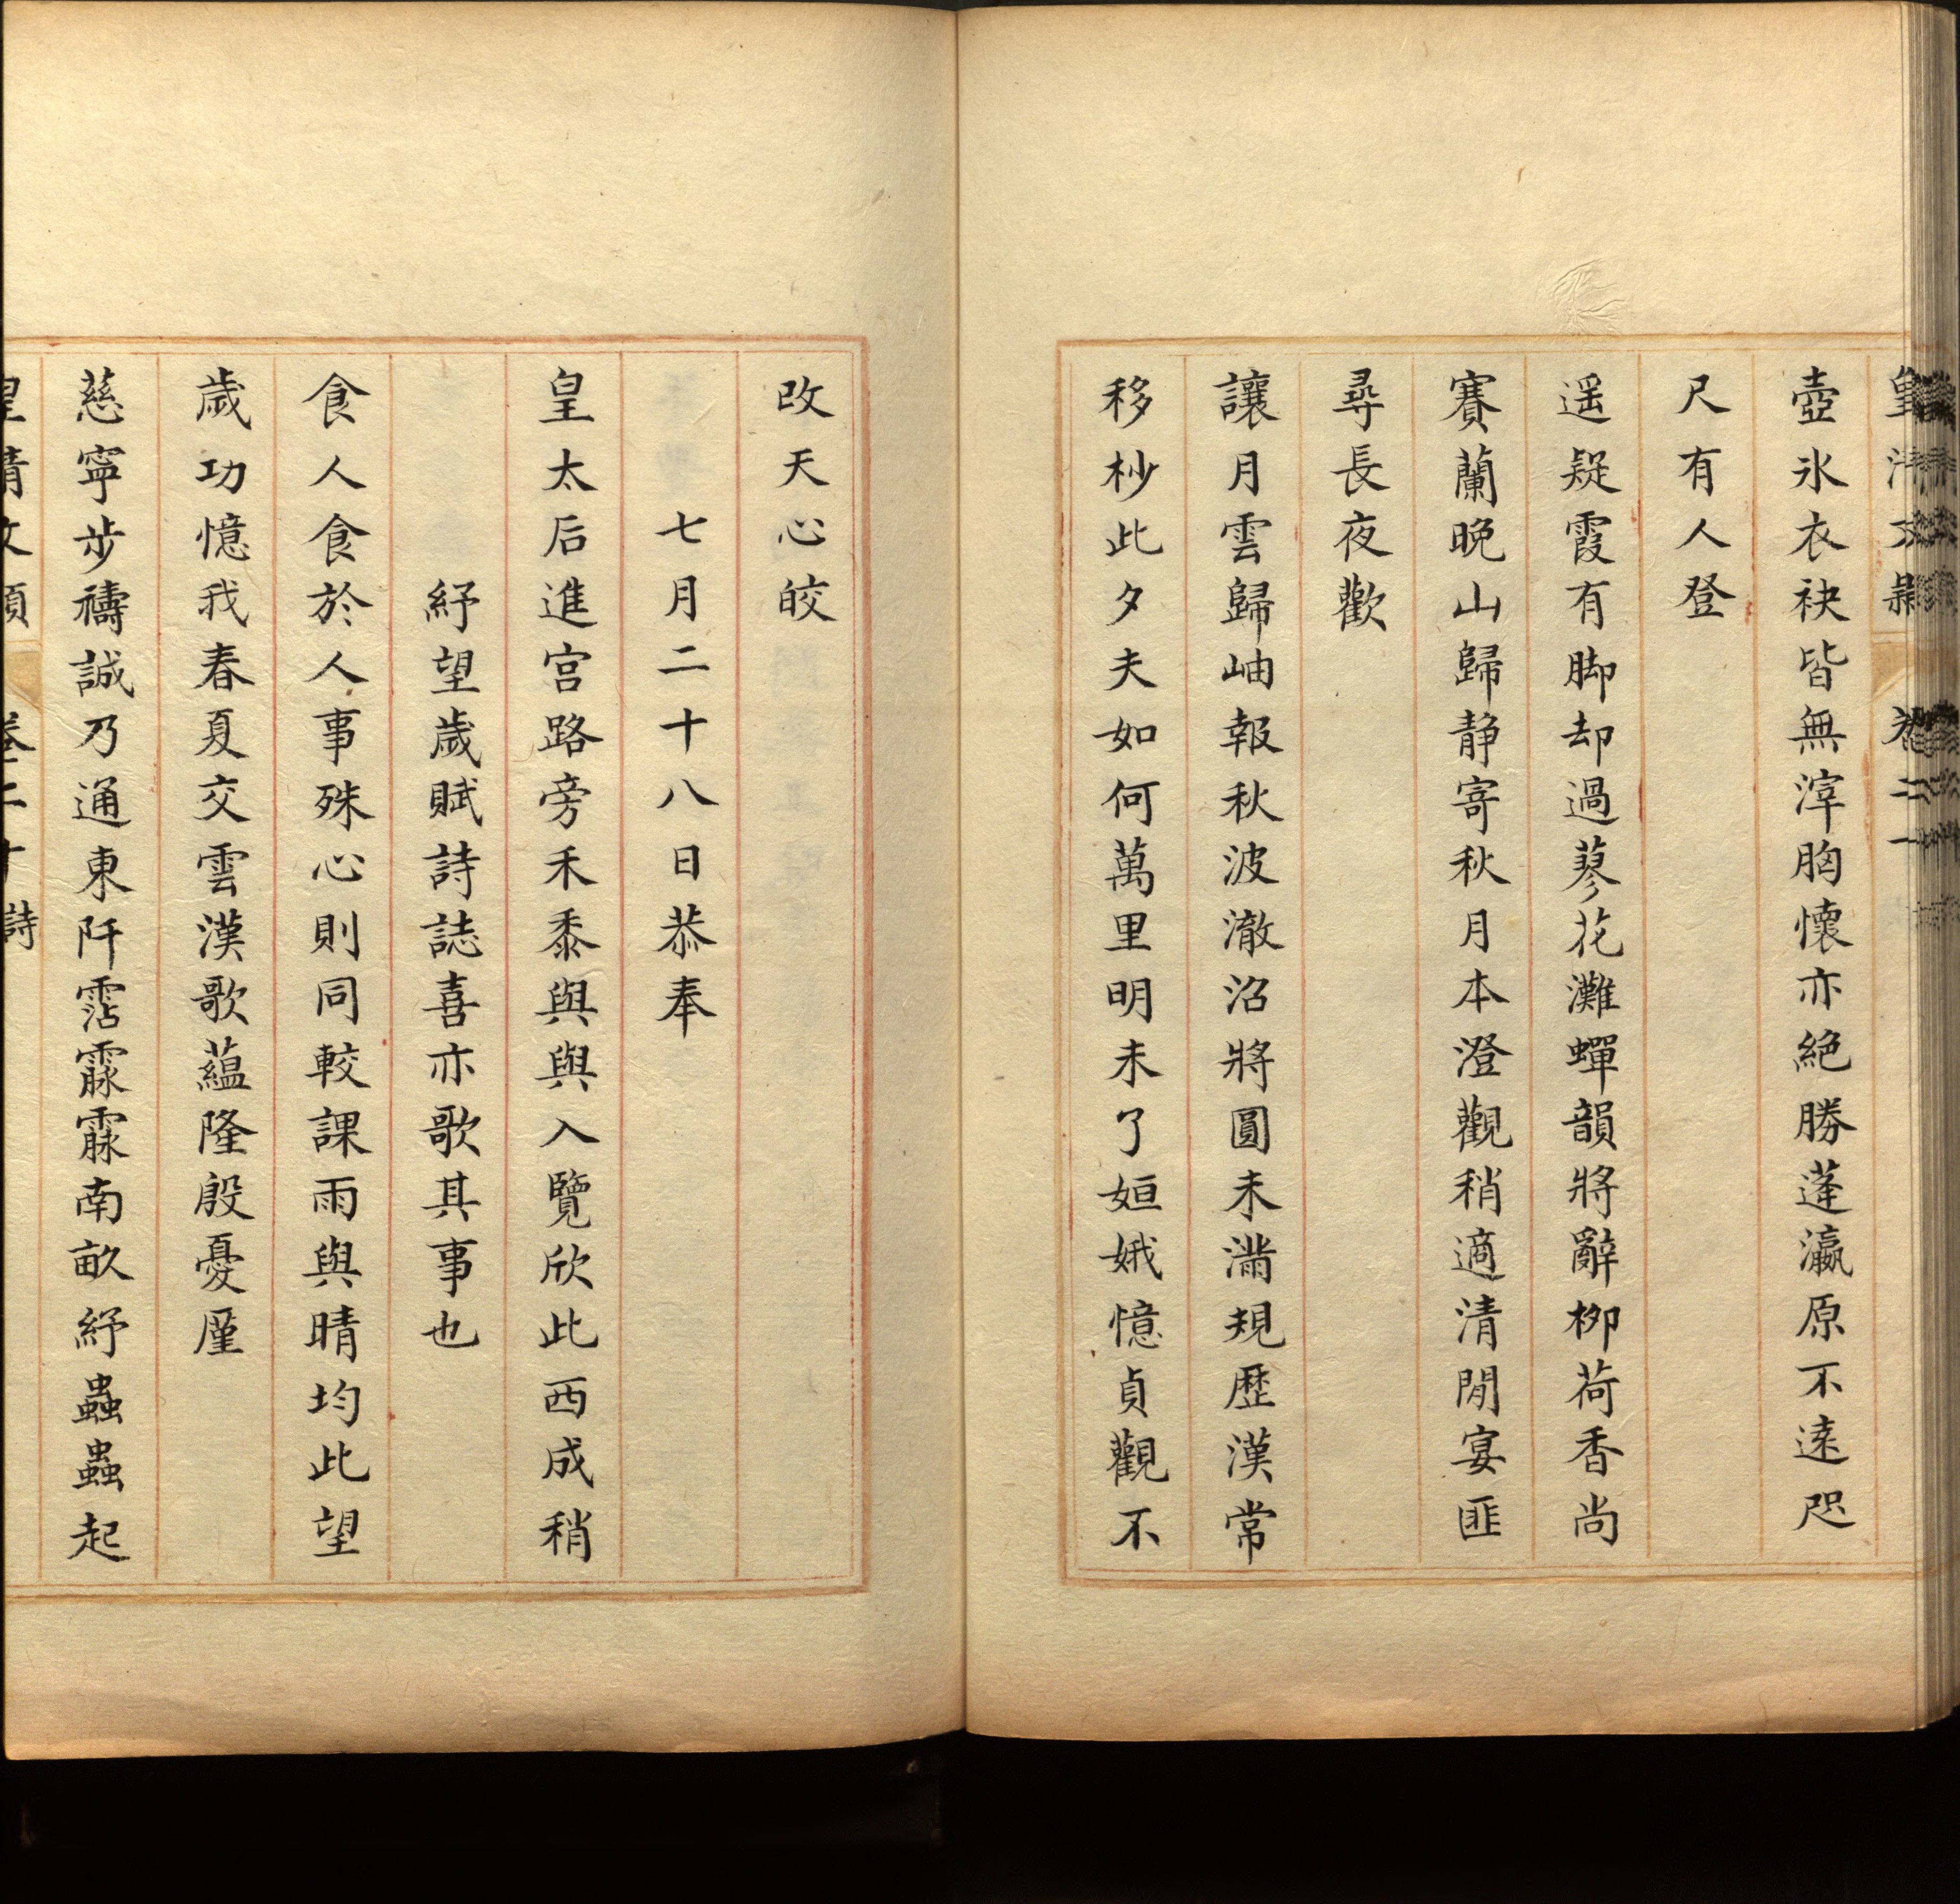 壺氷衣袂皆無滓胷懷亦絕勝蓬瀛原不逺咫
尺有人登
遥疑霞有脚却過蓼花灘蟬韻將辭栁荷香尚
賽蘭晚山歸静寄秋月本澄觀稍適清閒宴匪
尋長夜歡
讓月雲歸岫報秋波澈沼將圓未滿規歴漢常
移杪此夕夫如何萬里明未了姮娥憶貞觀不
改天心皎
七月二十八日恭奉
皇太后進宫路旁禾黍與與入覽欣此西成稍
紓望歲賦詩誌喜亦歌其事也
食人食於人事殊心則同較課雨與晴均此望
歲功憶我春夏交雲漢歌藴隆殷憂廑
慈寧步禱誠乃通東阡霑霡霂南畝紓蟲蟲起
皇清文穎 卷二十 詩